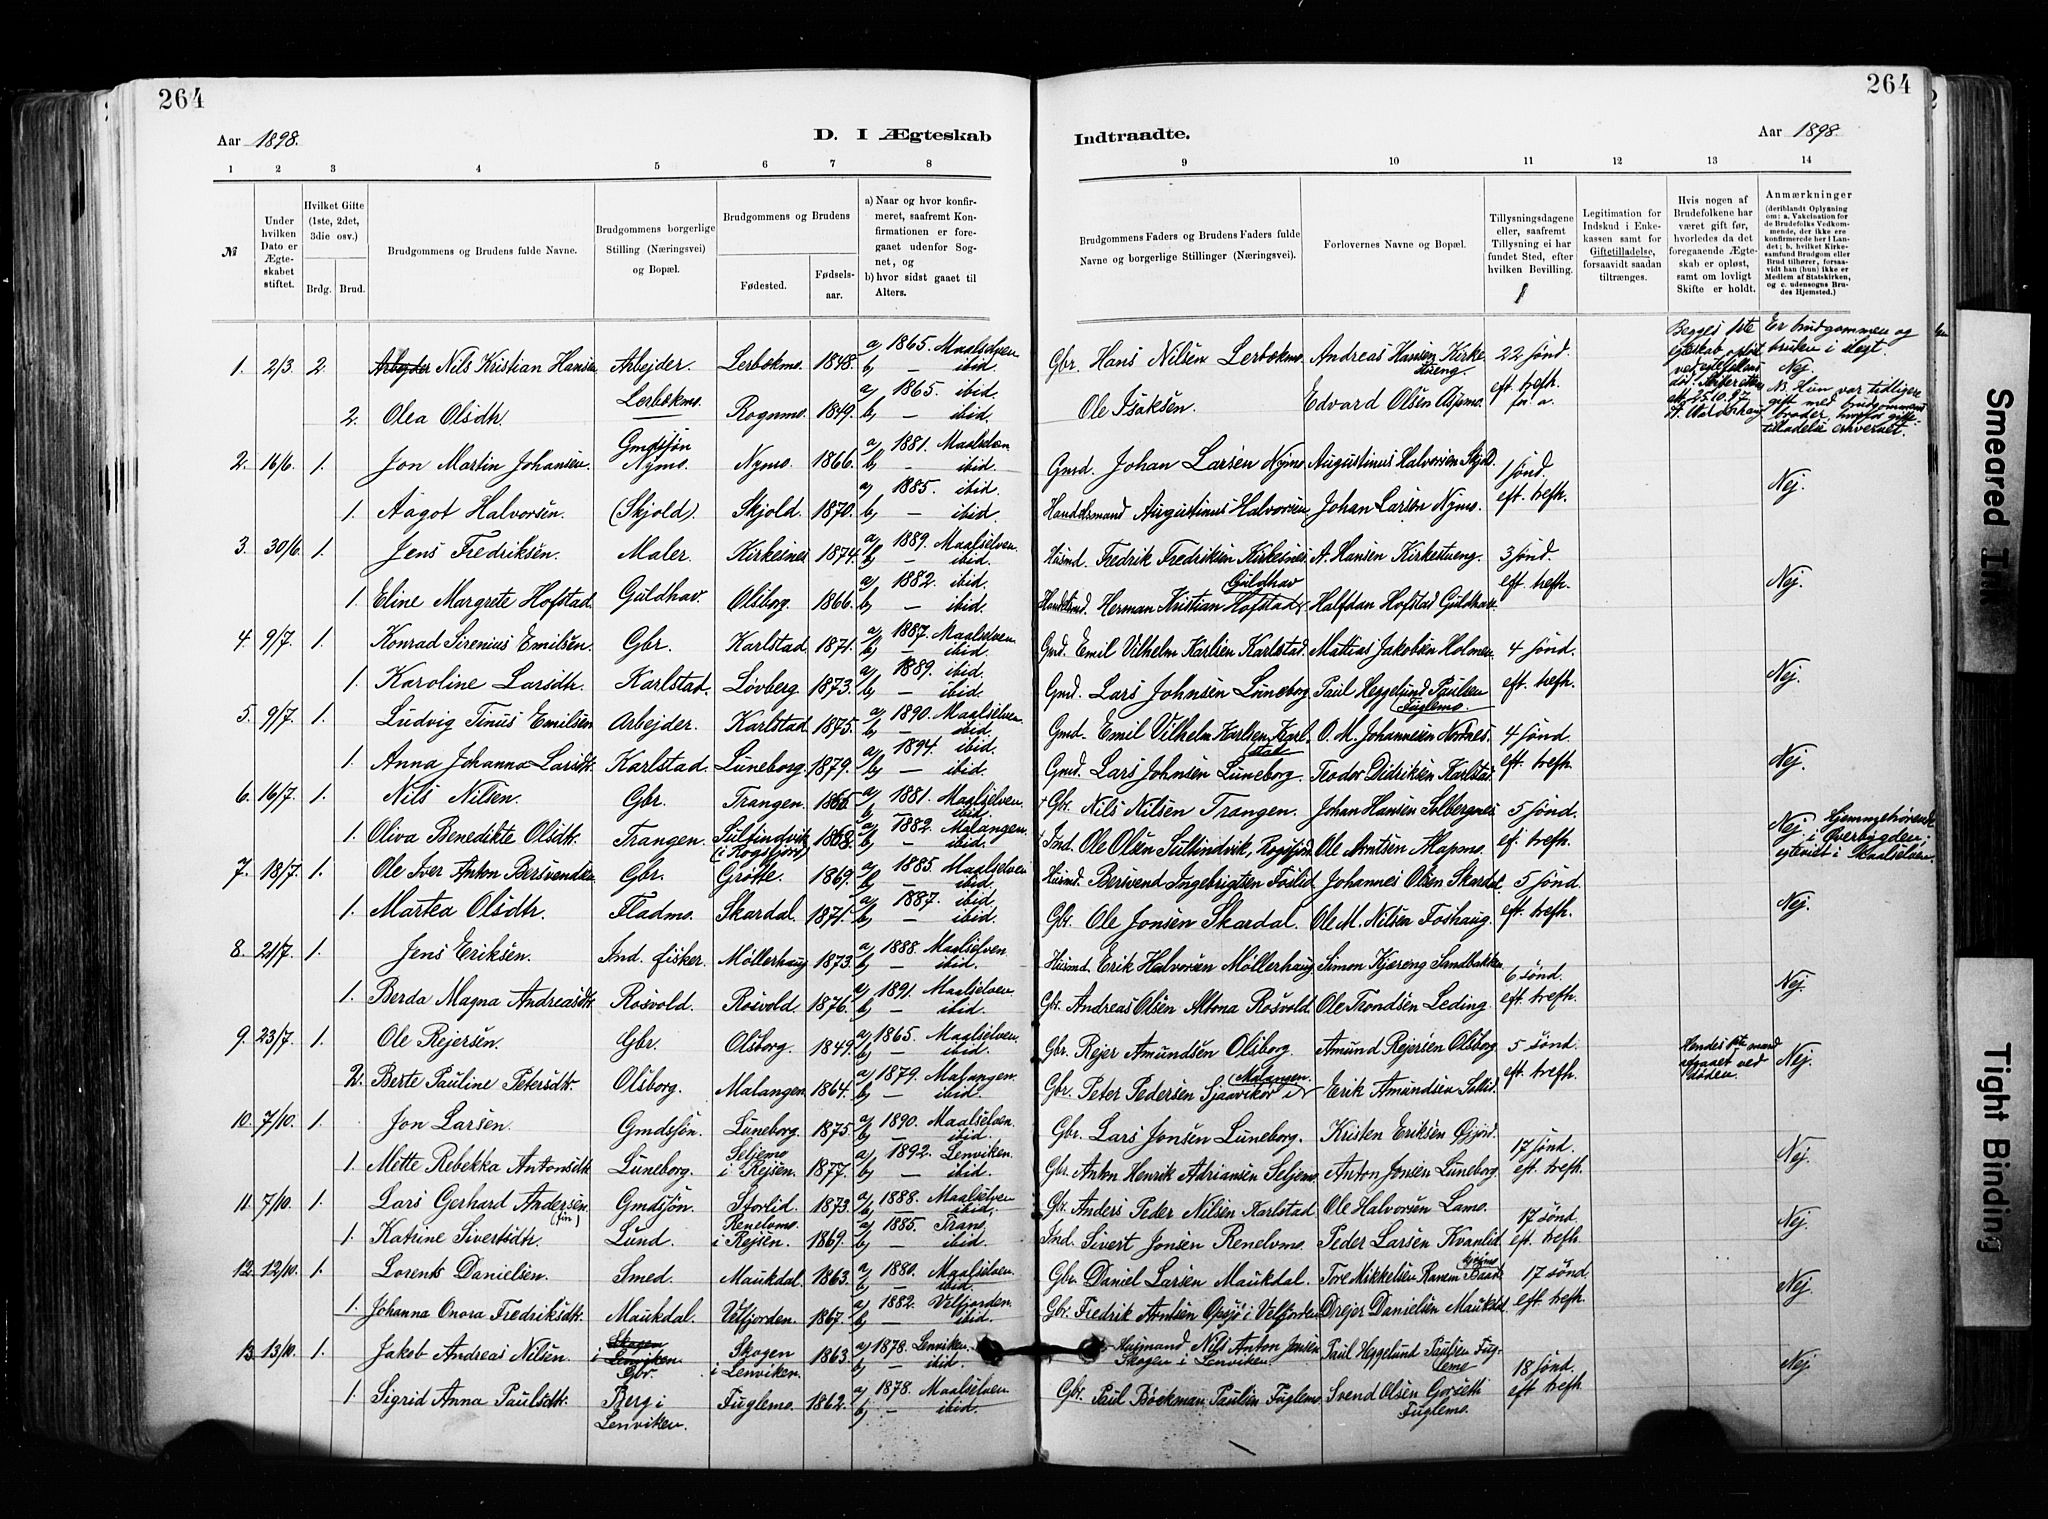 264
264
Aar 1898.
D. I Ægteskab
Indtraadte.
Aar 1898.
1 2 3 4 5 6 7 8
9 10 11 12 13 14
№
Under hvilken Dato er Ægteskabet stiftet.
Hvilket Gifte (1ste, 2det, 3die osv.)
Brdg. Brud.
Brudgommens og Brudens fulde Navne.
Brudgommens borgerlige Stilling (Næringsvei) og Bopæl.
Brudgommens og Brudens
Fødested.
Fødselsaar.
a) Naar og hvor konfirmeret, saafremt Konfirmationen er foregaaet udenfor Sognet, og
b) hvor sidst gaaet til Alters.
Brudgommens Faders og Brudens Faders fulde Navne og borgerlige Stillinger (Næringsvei).
Forlovernes Navne og Bopæl.
Tillysningsdagene eller, saafremt Tillysning ei har fundet Sted, efter hvilken Bevilling.
Legitimation for Indskud i Enkekassen samt for Giftetilladelse, forsaavidt saadan tiltrænges.
Hvis nogen af Brudefolkene har været gift før, hvorledes da det foregaaende Ægteskab er opløst, samt om lovligt Skifte er holdt.
Anmærkninger
(deriblandt Oplysning om: a. Vakcination for de Brudefolks Vedkommende, der ikke ere konfirmerede her i Landet; b. hvilket Kirkesamfund Brudgom eller Brud tilhører, forsaavidt han (hun) ikke er Medlem af Statskirken, og c. udensogns Brudes Hjemsted.)
1. 2/3. 2. Arbejder Nils Kristian Hansen Arbejder. Lerbekmo. 1848. a) 1865. Maalselven b) — ibid. Gbr. Hans Nilsen Lerbekmo. Andreas Hansen Kirkestueng. 22 sønd. eft. trefh.
2. Olea Olsdtr. Lerbekmo. Rognmo. 1849. a) 1865. ibid b) — ibid. Ole Isaksen. Edvard Olsen
Er brudgommen og bruden i slegt. Nej.
2. 16/6. 1. Jon Martin Johansen. Gmdsjøn Nymo. Nymo. 1866. a) 1881. Maalselven b) — ibid. Gmd. Johan Larsen Nymo. Augustinus Halvorsen Skjold. 1 sønd. eft. trefh. Nej.
1. Aagot Halvorsen. (Skjold). Skjold. 1870. a) 1885. ibid. b) — ibid. Handelsmand Augustinus Halvorsen Johan Larsen Nymo.
3. 30/6. 1. Jens Fredriksen. Maler. Kirkesnes 1874. a) 1889. Maalselven b) — ibid. Husmd. Fredrik Fredriksen Kirkesnes A. Hansen Kirkestueng. 3 sønd. eft. trefh. Nej.
1. Eline Margrete Hofstad. Guldhav. Olsborg. 1866. a) 1882. ibid b) — ibid. Herman Kristian Hofstad Guldhav Halfdan Hofstad Guldhav.
4. 9/7. 1. Konrad Sirenius Emilsen. Gbr. Karlstad. 1871. a) 1887. Maalselven b) — ibid. Gmd. Emil Vilhelm Karlsen Karlstad. Mattias Jakobsen Holmen. 4 sønd. eft. trefh. Nej.
1. Karoline Larsdtr. Karlstad. Løvberg 1873. a) 1889. ibid. b) — ibid. Gmd. Lars Johnsen Luneborg Paul Heggelund Paulsen Fuglemo.
5. 9/7. 1. Ludvig Tinus Emilsen Arbejder. Karlstad 1875. a) 1890. Maalselven b) — ibid. Gmd. Emil Vilhelm Karlsen Karlstad O. M. Johannesen 4 sønd. eft. trefh. Nej.
1. Anna Johanna Larsdtr. Karlstad. Luneborg 1879. a) 1894. ibid. b) — ibid. Gmd. Lars Johnsen Luneborg. Teodor Didriksen Karlstad.
6. 16/7. 1. Nils Nilsen. Gbr. Trangen. a) 1881. Maalselven b) — ibid. Gbr. Nils Nilsen Trangen. Johan Hansen Solbergnes. 5 sønd. ef. trefh. Nej.
1. Oliva Benedikte Olsdtr. Trangen. a) 1882. Malangen. b) — ibid. Ind. Ole Olsen
7. 18/7. 1. Ole Iver Anton Bersvendsen Gbr. Grøtte. 1869. a) 1885. Maalselven b) — ibid Husmd. Bersvend Ingebrigtsen Foslid Johannes Olsen Skardal 5 sønd. eft. trefh. Nej.
1. Martea Olsdtr. Fladmo. Skardal. 1871. a) 1887. ibid. b) — ibid. Gbr. Ole Jonsen Skardal. Ole M. Nilsen Foshaug.
8. 21/7. 1. Jens Eriksen. Ind. fisker. Møllerhaug 1873. a) 1888. Maalselven b) — ibid. Husmd. Erik Halvorsen Møllerhaug Simon Kjæreng Sandbakken. 6 sønd. eft. trefh. Nej.
1. Berda Magna Andreasdtr. Rosvold. Rosvold. 1876. a) 1891. Maalselven. b) — ibid. Gbr. Andreas Olsen Altona Rosvold. Ole Trondsen Leding
9. 23/7. 1. Ole Rejersen. Gbr. Olsborg. 1849. a) 1865. Maalselven b) — ibid. Gbr. Rejer Amundsen Olsborg. Amund Rejersen Olsborg 5 sønd. eft. trefh. Hendes 1ste mand afgaaet ved døden. Nej.
2. Berte Pauline Petersdtr. Olsborg. Malangen 1864. a) 1879. Malangen. b) — ibid. Gbr. Peter Pedersen Sjaavikor i Malangen. Erik Amundsen Sollid.
10. 7/10. 1. Jon Larsen. Gmdsjøn. Luneborg. 1875 a) 1890. Maalselven. b) — ibid. Gbr. Lars Jonsen Luneborg. Kristen Eriksen Øijord. 17 sønd. eft. trefh. Nej.
1. Mette Rebekka Antonsdtr. Luneborg. Seljemo i Rejsen. 1877. a) 1892. Lenviken. b) — ibid. Gbr. Anton Henrik Adriansen Seljemo Anton Jonsen Luneborg
11. 7/10. 1. Lars Gerhard Andersen. (fin) Gmdsjøn. Storlid. 1873. a) 1888. Maalselven b) — ibid. Gbr. Anders Peder Nilsen Karlstad. Ole Halvorsen Lamo. 17 sønd. eft. trefh. Nej.
1. Katrine Sivertsdtr. Lund. Renelvmo i Rejsen. 1869. a) 1885. Trano b) — ibid. Ind. Sivert Jonsen Renelvmo. Peder Larsen Kvanlid
12. 12/10. 1. Lorents Danielsen. Smed. Maukdal. 1863. a) 1880. Maalselven b) — ibid. Gbr. Daniel Larsen Maukdal. Tore Mikkelsen 17 sønd. eft. trefh. Nej.
1. Johanna Onora Fredriksdtr. Maukdal. Velfjorden. 1867. a) 1882. Velfjorden. b) — ibid. Gbr. Fredrik Arntsen Opsjø i Velfjorden Drejer Danielsen Maukdal
13. 13/10. 1. Jakob Andreas Nilsen. Skogen i Lenviken Gbr. Skogen i Lenviken. 1863. a) 1878. Lenviken. b) — ibid. Husmand Nils Anton Jensen Skogen i Lenviken. Paul Heggelund Paulsen Fuglemo 18 sønd. eft trefh. Nej.
1. Sigrid Anna Paulsdtr. Berg i Lenviken. Fuglemo. 1862. a) 1878. Maalselven b) — ibid. Gbr. Paul Bøckman Paulsen Fuglemo. Svend Olsen Gorseth Fuglemo.
Smeared Ink
Tight Binding